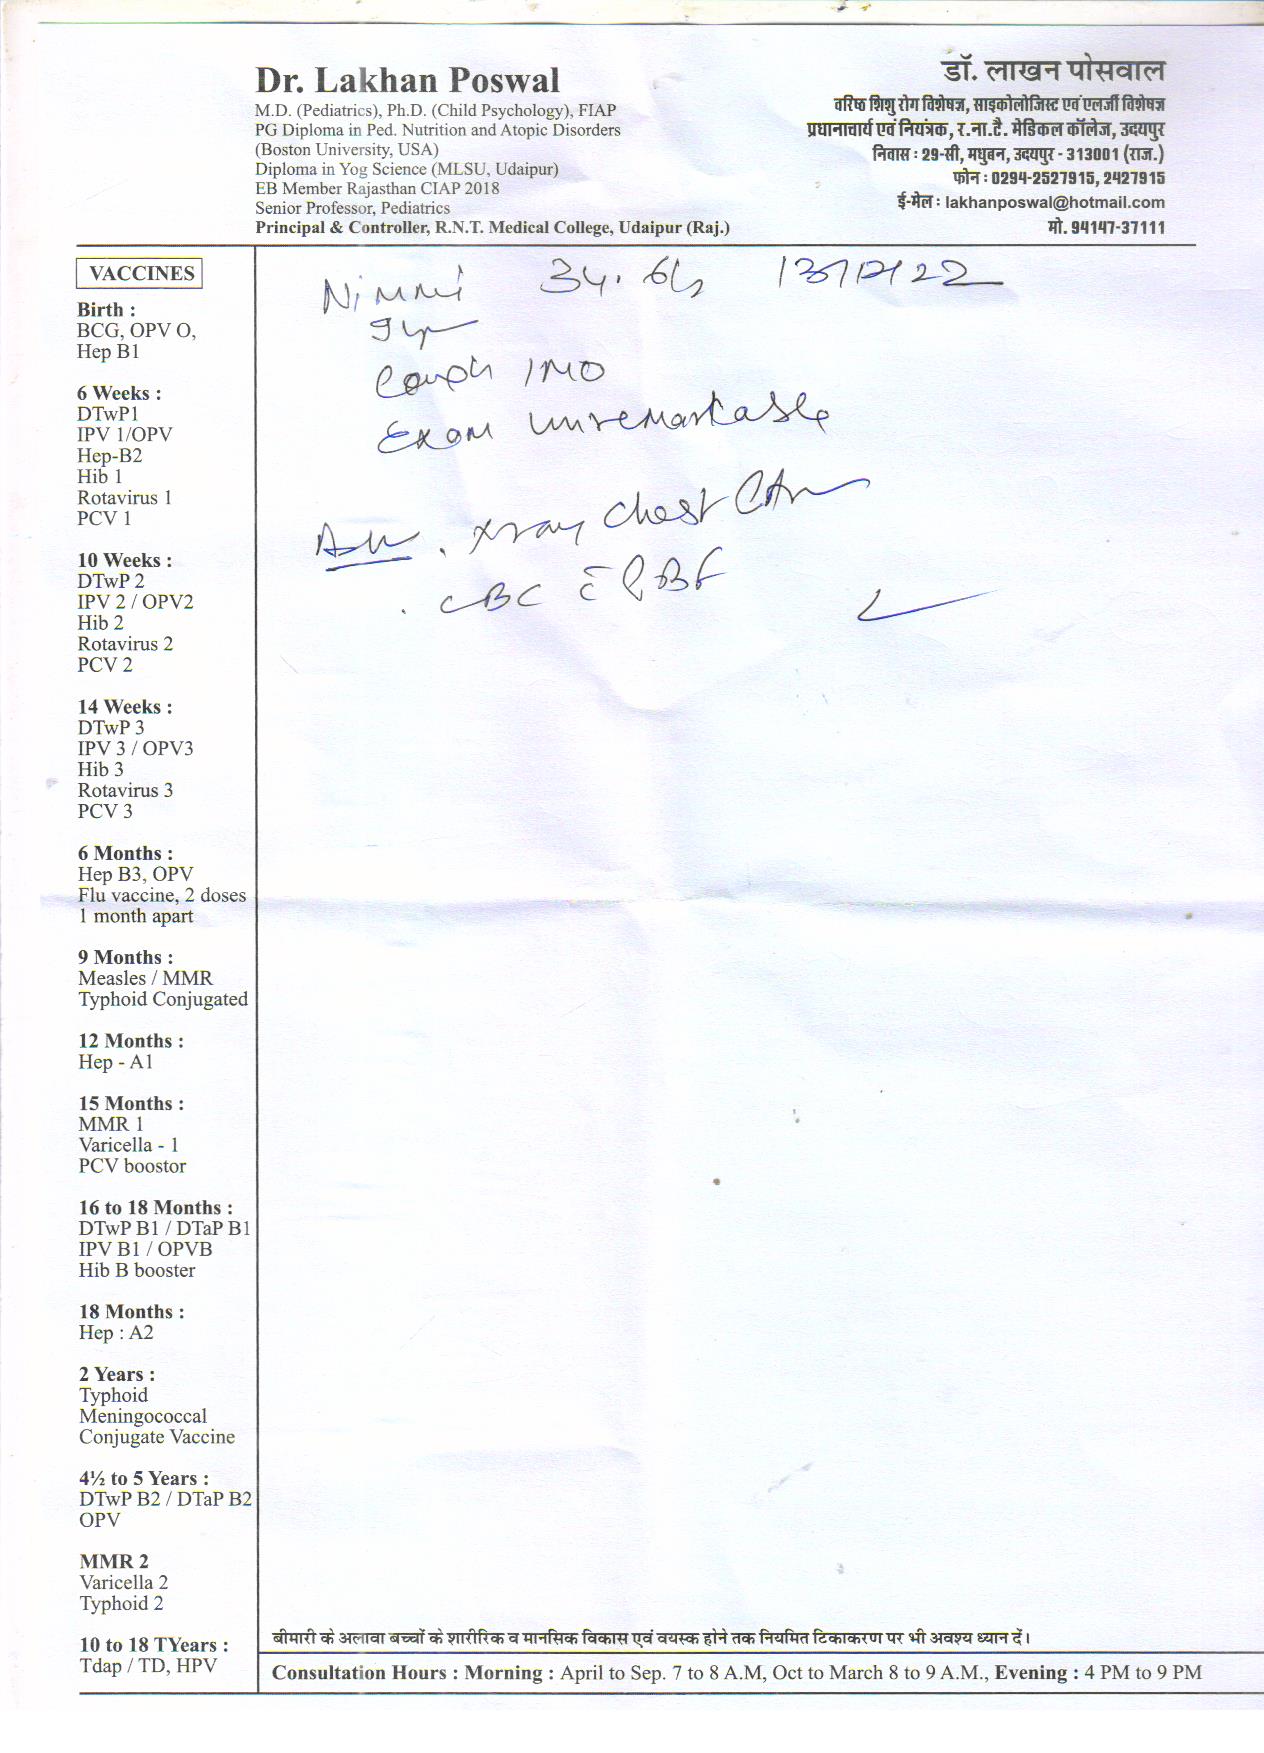 Dr. Lakhan Poswal
M.D. (Pediatrics), Ph.D. (Child Psychology), FIAP
PG Diploma in Ped. Nutrition and Atopic Disorders
(Boston University, USA)
Diploma in Yog Science (MLSU, Udaipur)
EB Member Rajasthan CIAP 2018
Senior Professor, Pediatrics
Principal & Controller, R.N.T. Medical College, Udaipur (Raj.)
डॉ. लाखन पोसवाल
वरिष्ठ शिशु रोग विशेषज्ञ, साइकोलोजिस्ट एवं एलर्जी विशेषज्ञ
प्रधानाचार्य एवं नियंत्रक, र.ना.टै. मेडिकल कॉलेज, उदयपुर
निवास : 29-सी, मधुबन, उदयपुर - 313001 (राज.)
फोन : 0294-2527915, 2427915
ई-मेल : lakhanposwal@hotmail.com
मो. 94147-37111
VACCINES
Birth :
BCG, OPV O,
Hep B1
6 Weeks :
DTwP1
IPV 1/OPV
Hep-B2
Hib 1
Rotavirus 1
PCV 1
10 Weeks :
DTwP 2
IPV 2 / OPV2
Hib 2
Rotavirus 2
PCV 2
14 Weeks :
DTwP 3
IPV 3 / OPV3
Hib 3
Rotavirus 3
PCV 3
6 Months :
Hep B3, OPV
Flu vaccine, 2 doses
1 month apart
9 Months :
Measles / MMR
Typhoid Conjugated
12 Months :
Hep - A1
15 Months :
MMR 1
Varicella - 1
PCV boostor
16 to 18 Months :
DTwP B1 / DTaP B1
IPV B1 / OPVB
Hib B booster
18 Months :
Hep : A2
2 Years :
Typhoid
Meningococcal
Conjugate Vaccine
4½ to 5 Years :
DTwP B2 / DTaP B2
OPV
MMR 2
Varicella 2
Typhoid 2
10 to 18 TYears :
Tdap / TD, HPV
Nimmi 34.6
Cough 1MO
Exam unremarkable
Adv . xray chest
. CBC c̄ PBF
बीमारी के अलावा बच्चों के शारीरिक व मानसिक विकास एवं वयस्क होने तक नियमित टिकाकरण पर भी अवश्य ध्यान दें।
Consultation Hours : Morning : April to Sep. 7 to 8 A.M, Oct to March 8 to 9 A.M., Evening : 4 PM to 9 PM